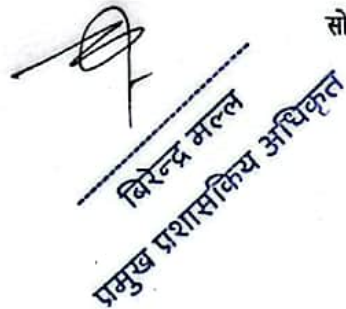 सो
बिरेन्द्र मल्ल
प्रमुख प्रशासकिय अधिकृत